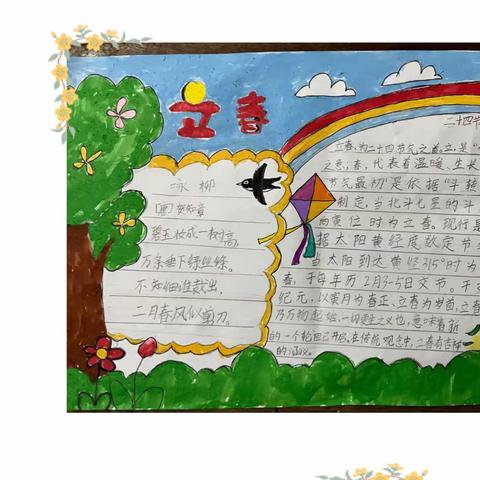 立春
咏柳
[唐]贺知章
碧玉妆成一树高,
万条垂下绿丝绦。
不知细谁裁出,
二月春风似剪刀。
二十四节
立春,为二十四节气之首。立,是“
之意;春,代表着温暖、生长
节气最初是依据“斗转
制定,当北斗七星的斗
寅位时为立春。现行是
据太阳黄经度数定节
当太阳到达黄经315°时为
春,于每年历2月3-5日交节。干支
纪元,以寅月为春正、立春为岁首,立春
乃万物起始、一切更生之义也,意味着新
的一个轮回已开启。在传统观念中,立春有吉祥
的涵义。